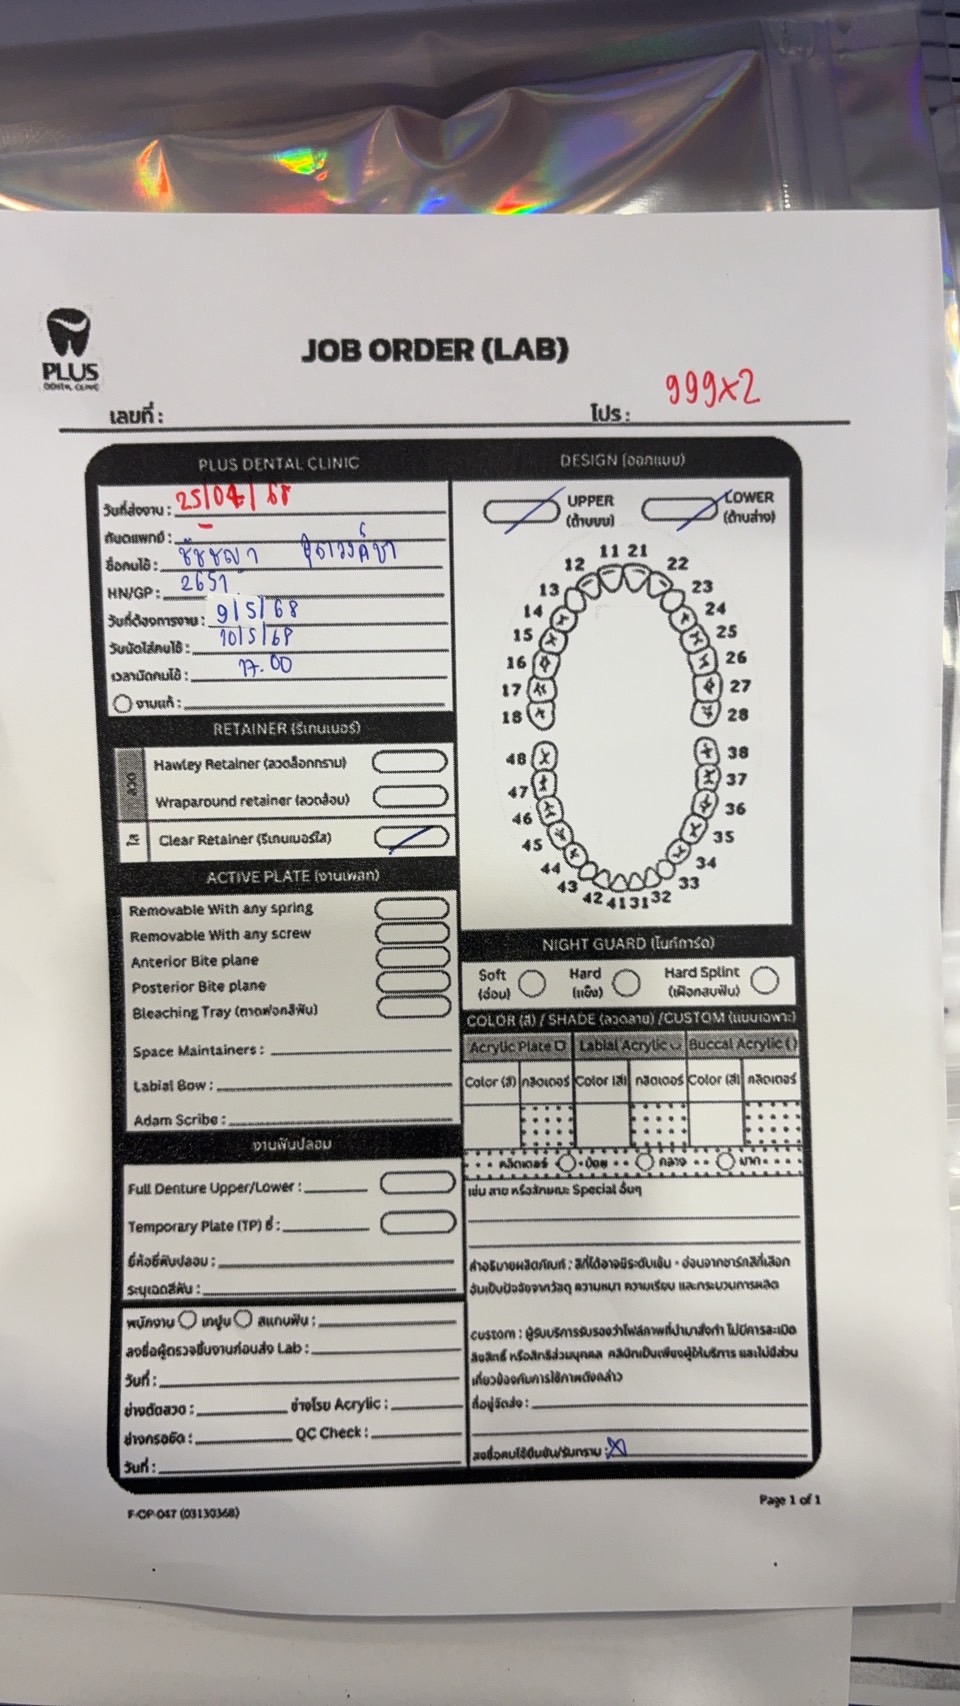 PLUS
DENTAL CLINIC
JOB ORDER (LAB)
เลขที่ :
โปร : 999x2
PLUS DENTAL CLINIC
วันที่ส่งงาน : 25/04/68
ทันตแพทย์ :
ชื่อคนไข้ : ชัชชญา
HN/GP : 2651
วันที่ต้องการงาน : 9/5/68
วันนัดใส่คนไข้ : 10/5/68
เวลานัดคนไข้ : 17.00
งานแก้ :
RETAINER (รีเทนเนอร์)
ลวด
Hawley Retainer (ลวดล็อกกราม)
Wraparound retainer (ลวดอ้อม)
ใส
Clear Retainer (รีเทนเนอร์ใส)
ACTIVE PLATE (งานเพลท)
Removable With any spring
Removable With any screw
Anterior Bite plane
Posterior Bite plane
Bleaching Tray (ถาดฟอกสีฟัน)
Space Maintainers :
Labial Bow :
Adam Scribe :
งานฟันปลอม
Full Denture Upper/Lower :
Temporary Plate (TP) ซี่ :
ยี่ห้อซี่ฟันปลอม :
ระบุเฉดสีฟัน :
พนักงาน เทปูน สแกนฟัน :
ลงชื่อผู้ตรวจชิ้นงานก่อนส่ง Lab :
วันที่ :
ช่างดัดลวด : ช่างโรย Acrylic :
ช่างกรอขัด : QC Check :
วันที่ :
DESIGN (ออกแบบ)
UPPER
(ด้านบน)
LOWER
(ด้านล่าง)
11 21
12 22
13 23
14 24
15 25
16 26
17 27
18 28
48 38
47 37
46 36
45 35
44 34
43 33
42 41 31 32
NIGHT GUARD (ไนท์การ์ด)
Soft
(อ่อน)
Hard
(แข็ง)
Hard Splint
(เฝือกสบฟัน)
COLOR (สี) / SHADE (ลวดลาย) /CUSTOM (แบบเฉพาะ)
Acrylic Plate Labial Acrylic Buccal Acrylic ( )
Color (สี) กลิตเตอร์ Color (สี) กลิตเตอร์ Color (สี) กลิตเตอร์
กลิตเตอร์ น้อย กลาง มาก
เช่น ลาย หรือลักษณะ Special อื่นๆ
คำอธิบายผลิตภัณฑ์ : สีที่ได้อาจมีระดับเข้ม - อ่อนจากชาร์ตสีที่เลือก
อันเป็นปัจจัยจากวัสดุ ความหนา ความเรียบ และกระบวนการผลิต
custom : ผู้รับบริการรับรองว่าไฟล์ภาพที่นำมาสั่งทำ ไม่มีการละเมิด
ลิขสิทธิ์ หรือสิทธิส่วนบุคคล คลินิกเป็นเพียงผู้ให้บริการ และไม่มีส่วน
เกี่ยวข้องกับการใช้ภาพดังกล่าว
ที่อยู่จัดส่ง :
ลงชื่อคนไข้ยืนยัน/รับทราบ : X
F-OP-047 (03130368)
Page 1 of 1